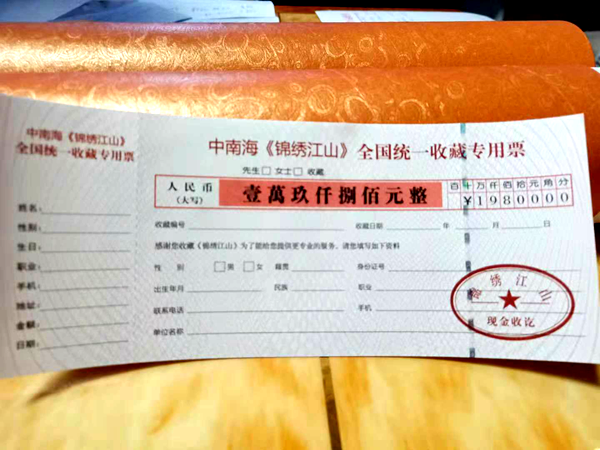 中南海《锦绣江山》
全国统一收藏专用票
姓名:
性别:
生日:
职业:
手机:
地址:
金额:
日期:
中南海《锦绣江山》全国统一收藏专用票
先生□ 女士□ 收藏
人民币
(大写)
壹萬玖仟捌佰元整
百十万仟佰拾元角分
¥1980000
收藏编号 收藏日期 年 月 日
感谢您收藏《锦绣江山》为了能给您提供更专业的服务,请您填写如下资料
性 别 □男 □女 籍贯 身份证号
出生年月 民族 职业
联系电话 手机
单位名称
锦绣江山
现金收讫